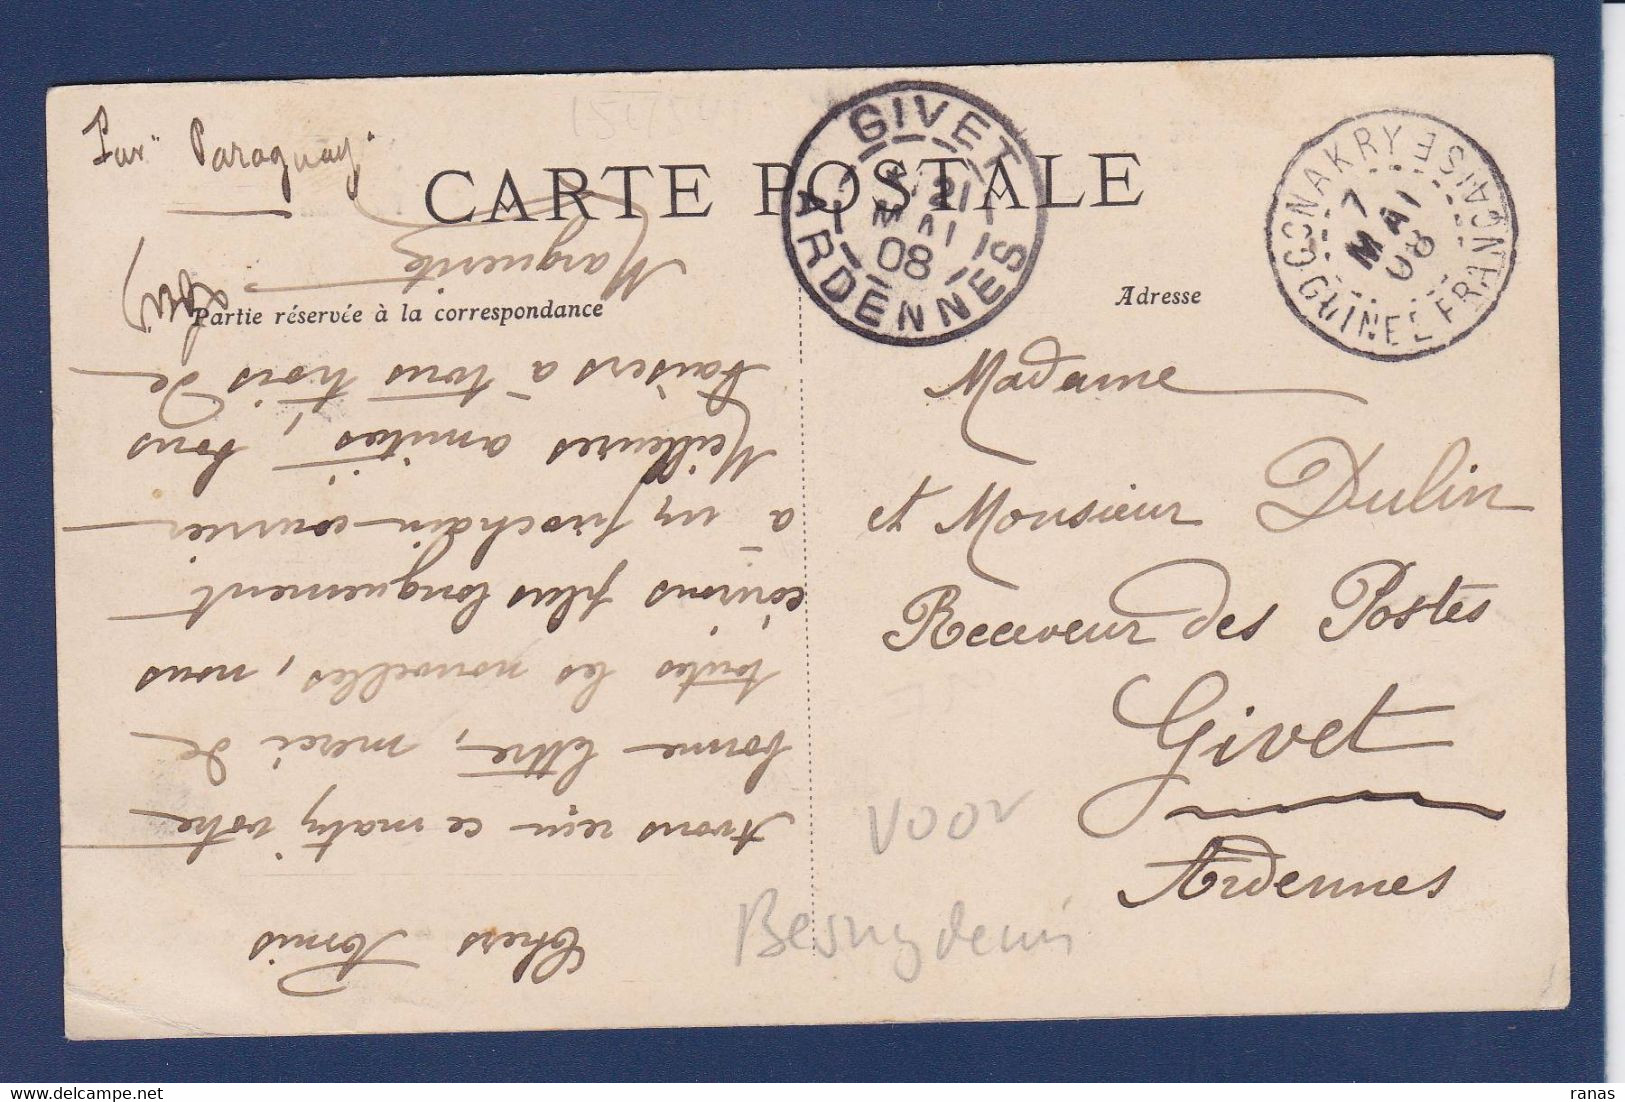 Par "Paraguay"
CARTE POSTALE
Partie réservée à la correspondance
Adresse
GIVET
21
MAI
08
ARDENNES
CONAKRY
7
MAI
08
GUINEE FRANCAISE
Madame
et Monsieur Dulin
Receveur des Postes
Givet
Ardennes
Chers Amis
Avons reçu ce matin votre
bonne lettre, merci de
toutes les nouvelles, nous
écrirons plus longuement
à un prochain courrier
Meilleures amitiés, bons
baisers à tous trois de
Marguerite
voor
ranas